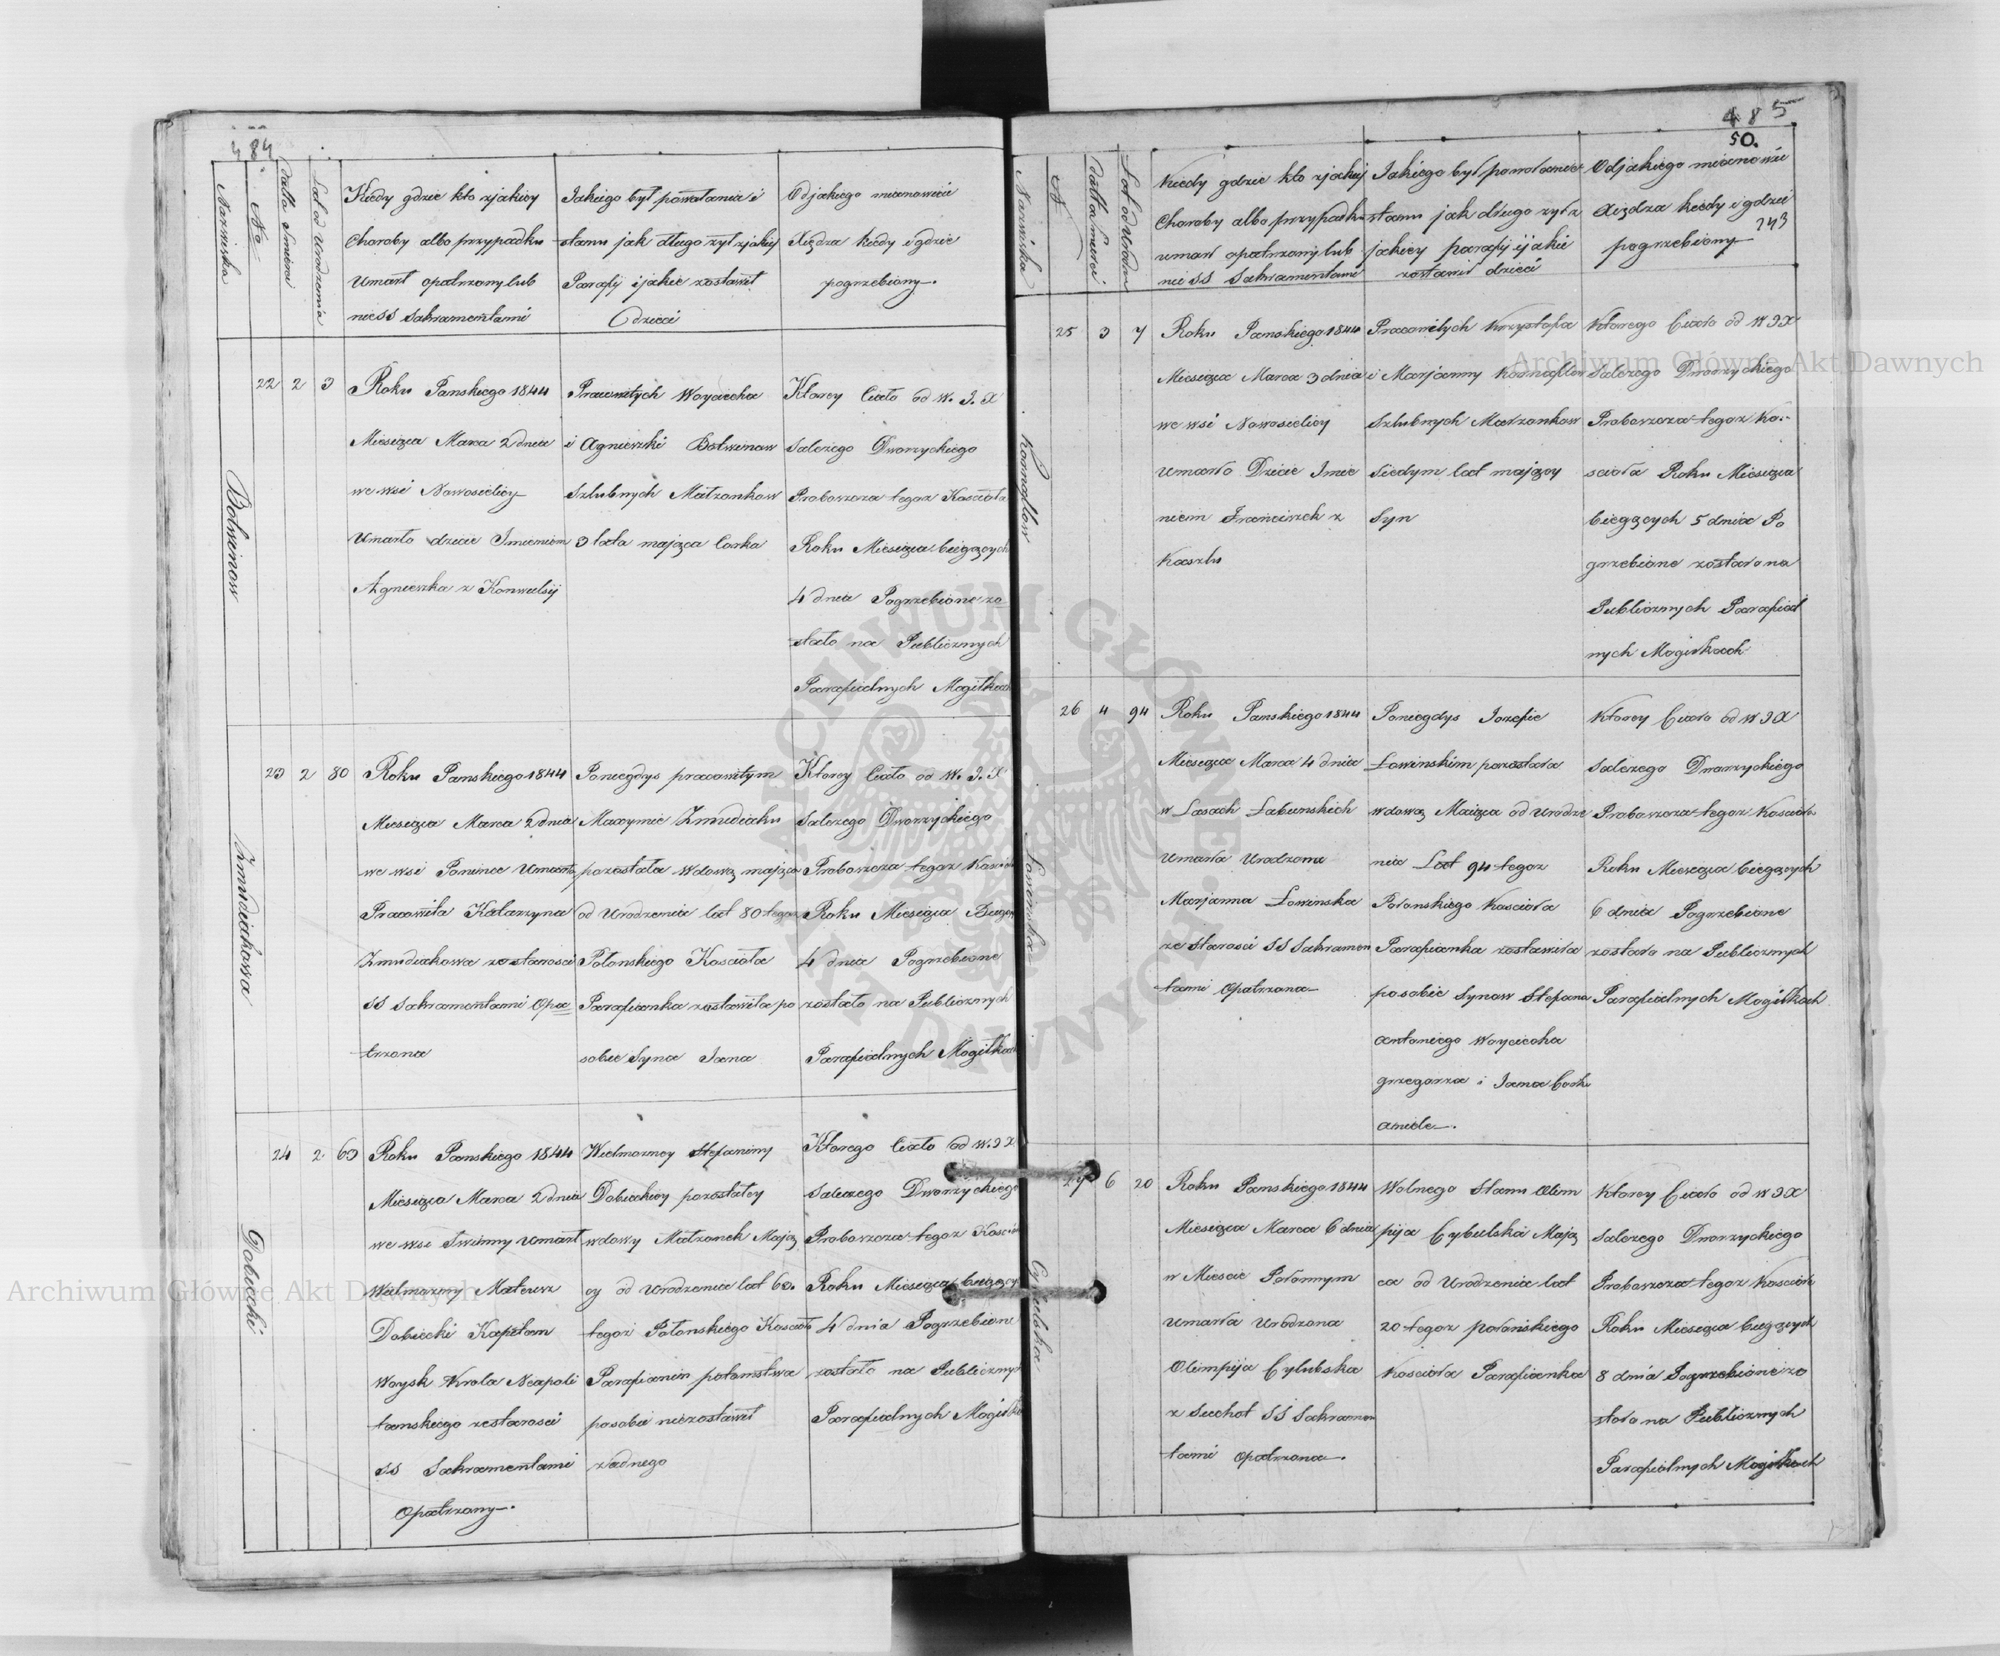 484
Nazwiska
No
Datta Smierci
Lat od Urodzenia
Kiedy gdzie kto zjakiey
Choroby albo przypadku
Umarł opatrzony lub
nie SS Sakramentami
Jakiego był powołania i
stanu jak długo żył zjakiey
Parafij i jakie zostawił
Dzieci
Odjakiego mianowicie
Xiędza kiedy i gdzie
pogrzebiony.
22 2 3
Roku Panskiego 1844
Miesiąca Marca 2 dnia
we wsi Nowosielicy
Umarło dziecie Imieniem
Agnieszka z Konwulsij
Pracowitych Woyciecha
i Agnieszki Botwinow
Szlubnych Małzonkow
3 lata maiąca Corka
Ktorey Ciało od W. J. X
Salezego Dworzyckiego
Proboszcza tegoz Kościoła
Roku Miesiąca bieżących
4 dnia Pogrzebione zo
stało na Publicznych
Parafialnych Mogiłkach
23 2 80
Żmudiakowa
Roku Panskiego 1844
Miesiąca Marca 2 dnia
we wsi Ponince Umarła
Pracowita Katarzyna
Zmudiakowa ze starosci
SS Sakramentami Opa
trzona
Poniegdys pracowitym
Maxymie Zmudiaku
pozostała Wdową maiąca
od Urodzenia lat 80 tegoz
Połonskiego Kościoła
Parafianka zostawiła po
sobie Syna Jana
Ktorey Ciało od W. J. X
Salezego Dworzyckiego
Proboszcza tegoz Kościoła
Roku Miesiąca Bieżą
4 dnia Pogrzebione
zostało na Publicznych
Parafialnych Mogiłkach
24 2 60
Dobiecki
Roku Panskiego 1844
Miesiąca Marca 2 dnia
we wsi Swinny umarł
Wielmozny Mateusz
Dobiecki Kapitan
Woysk Krola Neapoli
tanskiego ze starosci
SS Sakramentami
Opatrzony.
Wielmozney Stefaniny
Dobieckiey pozostałey
wdowy Małzonek Maią
cy od Urodzenia lat 60.
tegoż Połonskiego Kościoła
Parafianin potomstwa
po sobie niezostawił
zadnego
Ktorego Ciało od W. J X
Salezego Dworzyckiego
Proboszcza tegoz Kościo
Roku Miesiąca bieżący
4 dnia Pogrzebione
zostało na Publicznych
Parafialnych Mogiłka
485
50.
243
Nazwiska
N
Datta Smierci
Lat od Urodze
Kiedy gdzie kto zjakiej
Choroby albo przypadku
umarł opatrzony lub
nie SS Sakramentami
Jakiego był powołania i
stanu jak długo zył z
jakiey parafij i jakie
zostawił dzieci
Odjakiego mianowicie
Xiędza kiedy i gdzie
pogrzebiony
25 3 7
Roku Panskiego 1844
Miesiąca Marca 3 dnia
we wsi Nowosielicy
Umarło Dziecie Imie
niem Franciszek z
Kaszlu
Pracowitych Krzysztofa
i Marjanny
Szlubnych Małzonkow
Siedym lat maiący
Syn
Ktorego Ciało od W J X
Salezego Dworzyckiego
Proboszcza tegoz Ko-
scioła Roku Miesiąca
bieżących 5 dnia Po
grzebione zostało na
Publicznych Parafial
nych Mogiłkach
26 4 94
Łowinska
Roku Panskiego 1844
Miesiąca Marca 4 dnia
w Lasach Łabunskich
Umarła Urodzona
Marjanna Łowinska
ze starosci SS Sakramen
tami Opatrzona
Poniegdys Jozefie
Łowinskim pozostała
wdową Maiąca od Urodze
nia Lat 94 tegoz
Połonskiego Kościoła
Parafianka zostawiła
po sobie Synow Stefana
Antoniego Woyciecha
Grzegorza i Jana Cork
Aniele.
Ktorey Ciało od W J X
Salezego Dworzyckiego
Proboszcza tegoz Kościoła
Roku Miesiąca bieżących
6 dnia Pogrzebione
zostało na Publicznych
Parafialnych Mogiłkach
27 6 20
Roku Panskiego 1844
Miesiąca Marca 6 dnia
w Miescie Połonnym
Umarła Urodzona
Olimpija Cybulska
z Suchot SS Sakramen
tami Opatrzona.
Wolnego Stanu Olim
pija Cybulska Maią
ca od Urodzenia lat
20 tegoz połońskiego
Kościoła Parafianka
Ktorey Ciało od W J X
Salezego Dworzyckiego
Proboszcza tegoz Kościoła
Roku Miesiąca bieżących
8 dnia Pogrzebione zo
stało na Publicznych
Parafialnych Mogiłkach
Archiwum Główne Akt Dawnych
Archiwum Główne Akt Dawnych
ARCHIWUM GŁÓWNE AKT DAWNYCH